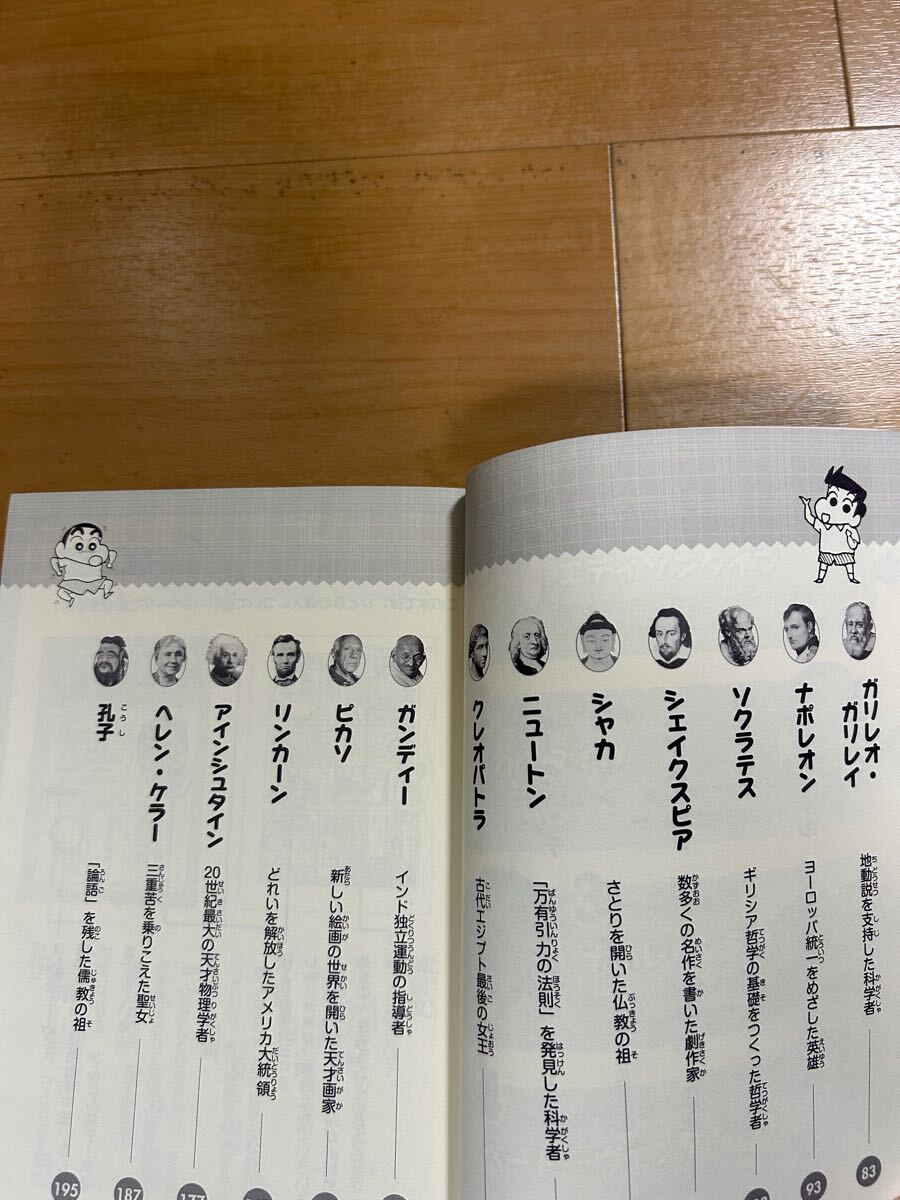 ガリレオ・
ガリレイ
地動説を支持した科学者
83
ナポレオン
ヨーロッパ統一をめざした英雄
93
ソクラテス
ギリシア哲学の基礎をつくった哲学者
シェイクスピア
数多くの名作を書いた劇作家
シャカ
さとりを開いた仏教の祖
ニュートン
「万有引力の法則」を発見した科学者
クレオパトラ
古代エジプト最後の女王
ガンディー
インド独立運動の指導者
ピカソ
新しい絵画の世界を開いた天才画家
リンカーン
どれいを解放したアメリカ大統領
アインシュタイン
20世紀最大の天才物理学者
177
ヘレン・ケラー
三重苦を乗りこえた聖女
187
孔子
「論語」を残した儒教の祖
195